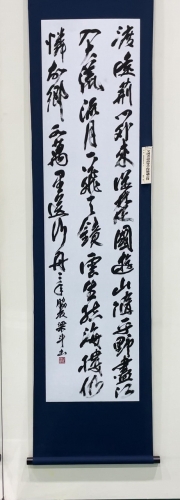 渡遠荊門外来從楚國遊山隨平野盡江
入大荒流月下飛天鏡雲生結海樓仍
憐故鄉水萬里送行舟